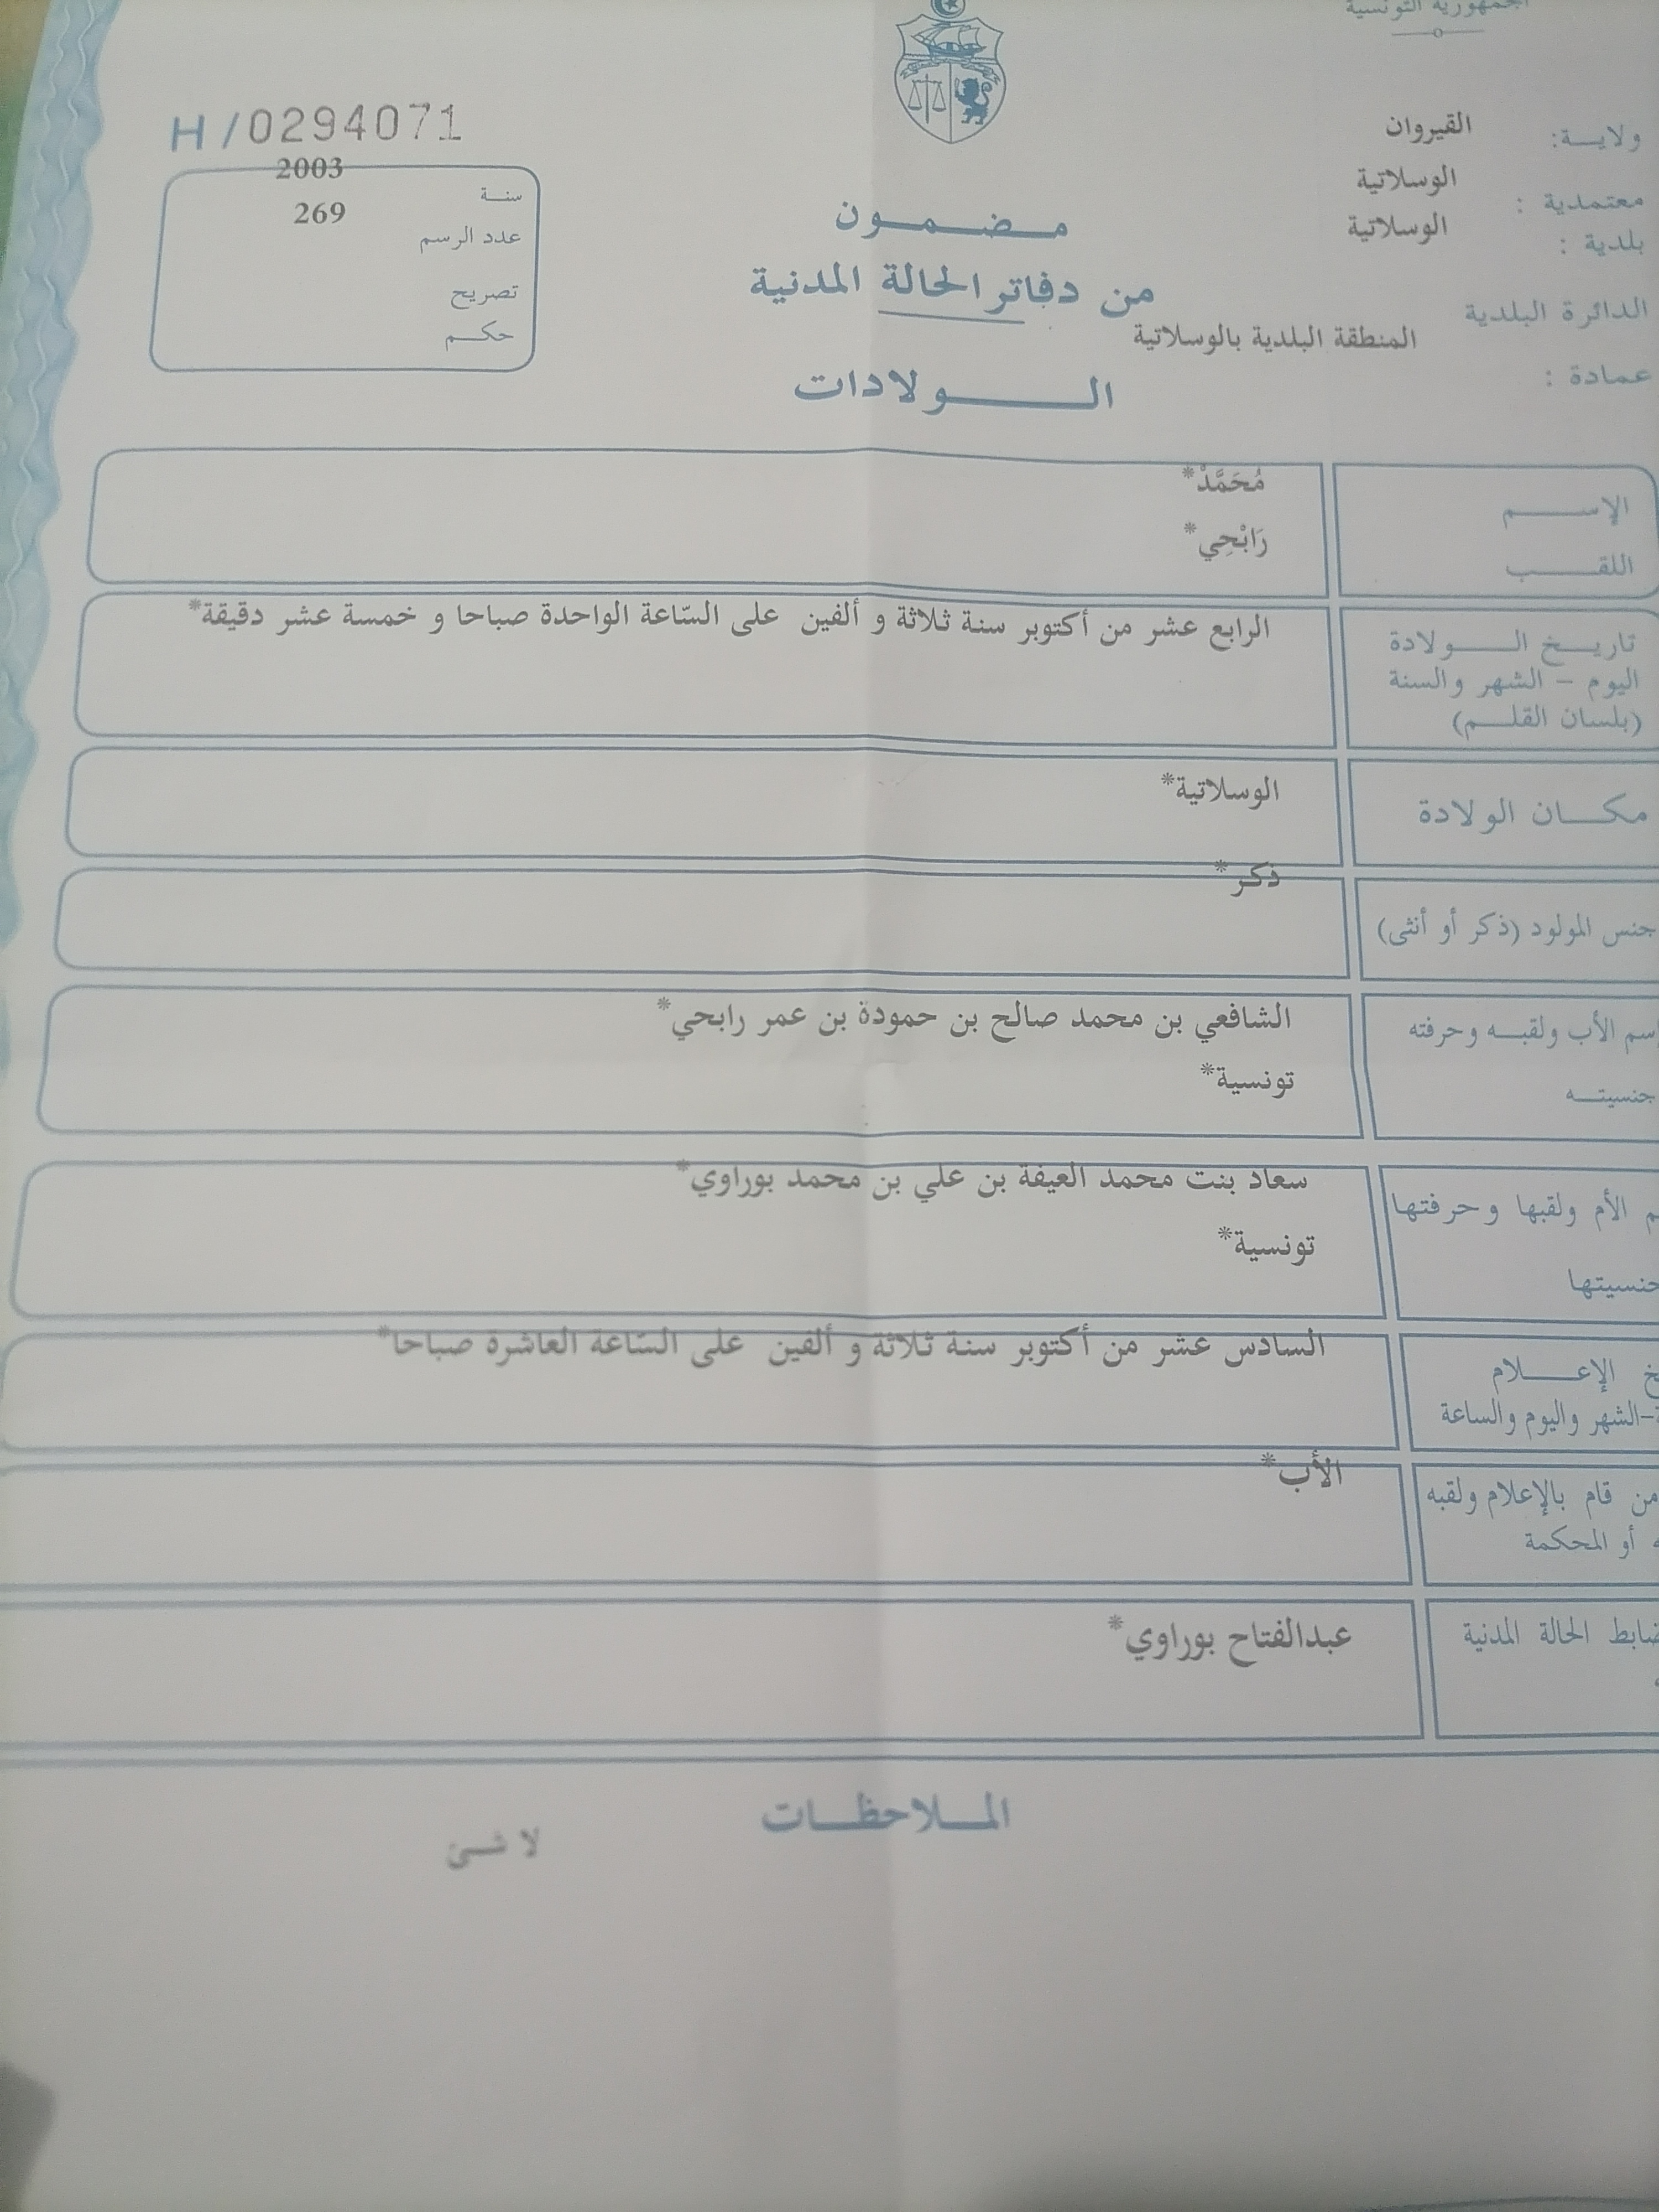 الجمهورية التونسية
ولاية: القيروان
معتمدية : الوسلاتية
بلدية : الوسلاتية
الدائرة البلدية
المنطقة البلدية بالوسلاتية
عمادة :
H/0294071
سنة 2003
عدد الرسم 269
تصريح
حكم
مضمون
من دفاتر الحالة المدنية
الولادات
الإسم مُحَمَّدْ*
اللقب رَابْحِي*
تاريخ الولادة
اليوم - الشهر والسنة
(بلسان القلم)
الرابع عشر من أكتوبر سنة ثلاثة و ألفين على السّاعة الواحدة صباحا و خمسة عشر دقيقة*
مكان الولادة الوسلاتية*
جنس المولود (ذكر أو أنثى) ذكر*
إسم الأب ولقبه وحرفته الشافعي بن محمد صالح بن حمودة بن عمر رابحي*
جنسيته تونسية*
م الأم ولقبها وحرفتها سعاد بنت محمد العيفة بن علي بن محمد بوراوي*
جنسيتها تونسية*
خ الإعلام
ة-الشهر واليوم والساعة
السادس عشر من أكتوبر سنة ثلاثة و ألفين على السّاعة العاشرة صباحا*
من قام بالإعلام ولقبه
ه أو المحكمة
الأب*
ضابط الحالة المدنية عبدالفتاح بوراوي*
الملاحظات
لا شئ